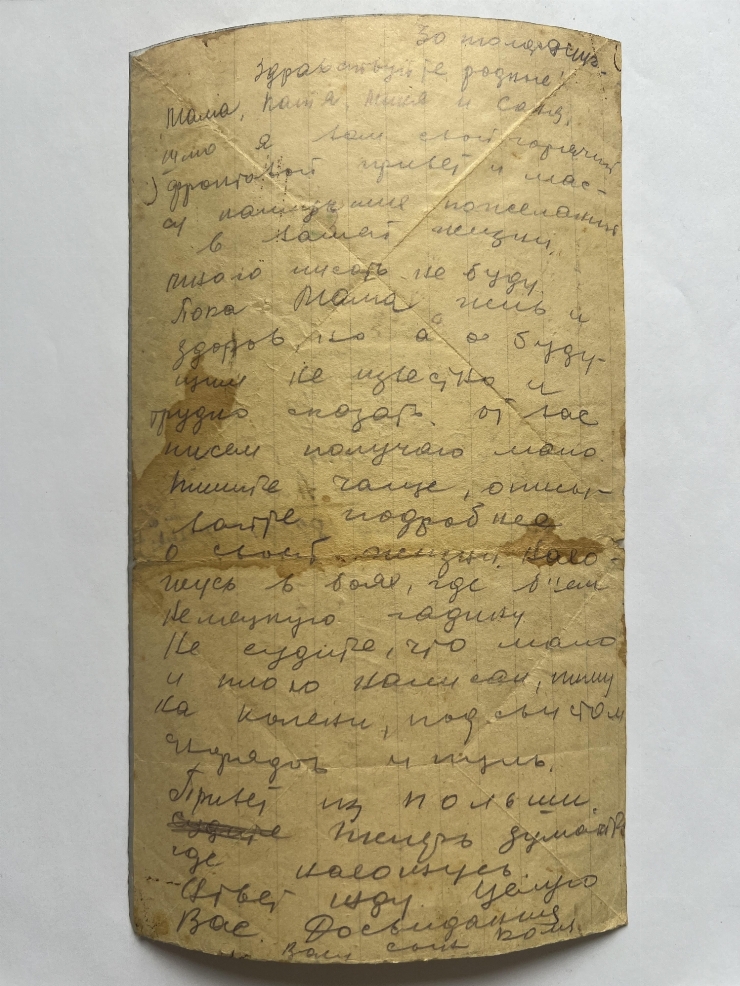 Здравствуйте, родные!
Мама, Катя, и Саня,
шлю я вам свой горячий
фронтовой привет и мас-
су наилучшие пожелания
в вашей жизни.
много писать не буду.
Пока Мама, жив и
здоров, но а о буду-
щим не известно и
трудно сказать. от вас
писем получаю мало.
Пишите чаще, описы-
вайте подробнее
о своей жизни. Нахо-
жусь в боях, где бьем
немецкую гадину
Не судите, что мало
и плохо написал, пишу
на колени, под свистом
снарядов и пуль.
Привет из польши.
теперь думайте
где нахожусь
Ответ жду. Целую
Вас. Досвидания
Ваш сын Коля